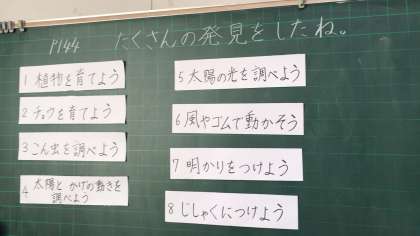 P144 たくさんの発見をしたね。
1 植物を育てよう
2 チョウを育てよう
3 こん虫を調べよう
4 太陽と かげの動きを
調べよう
5 太陽の光を調べよう
6 風やゴムで動かそう
7 明かりをつけよう
8 じしゃくにつけよう